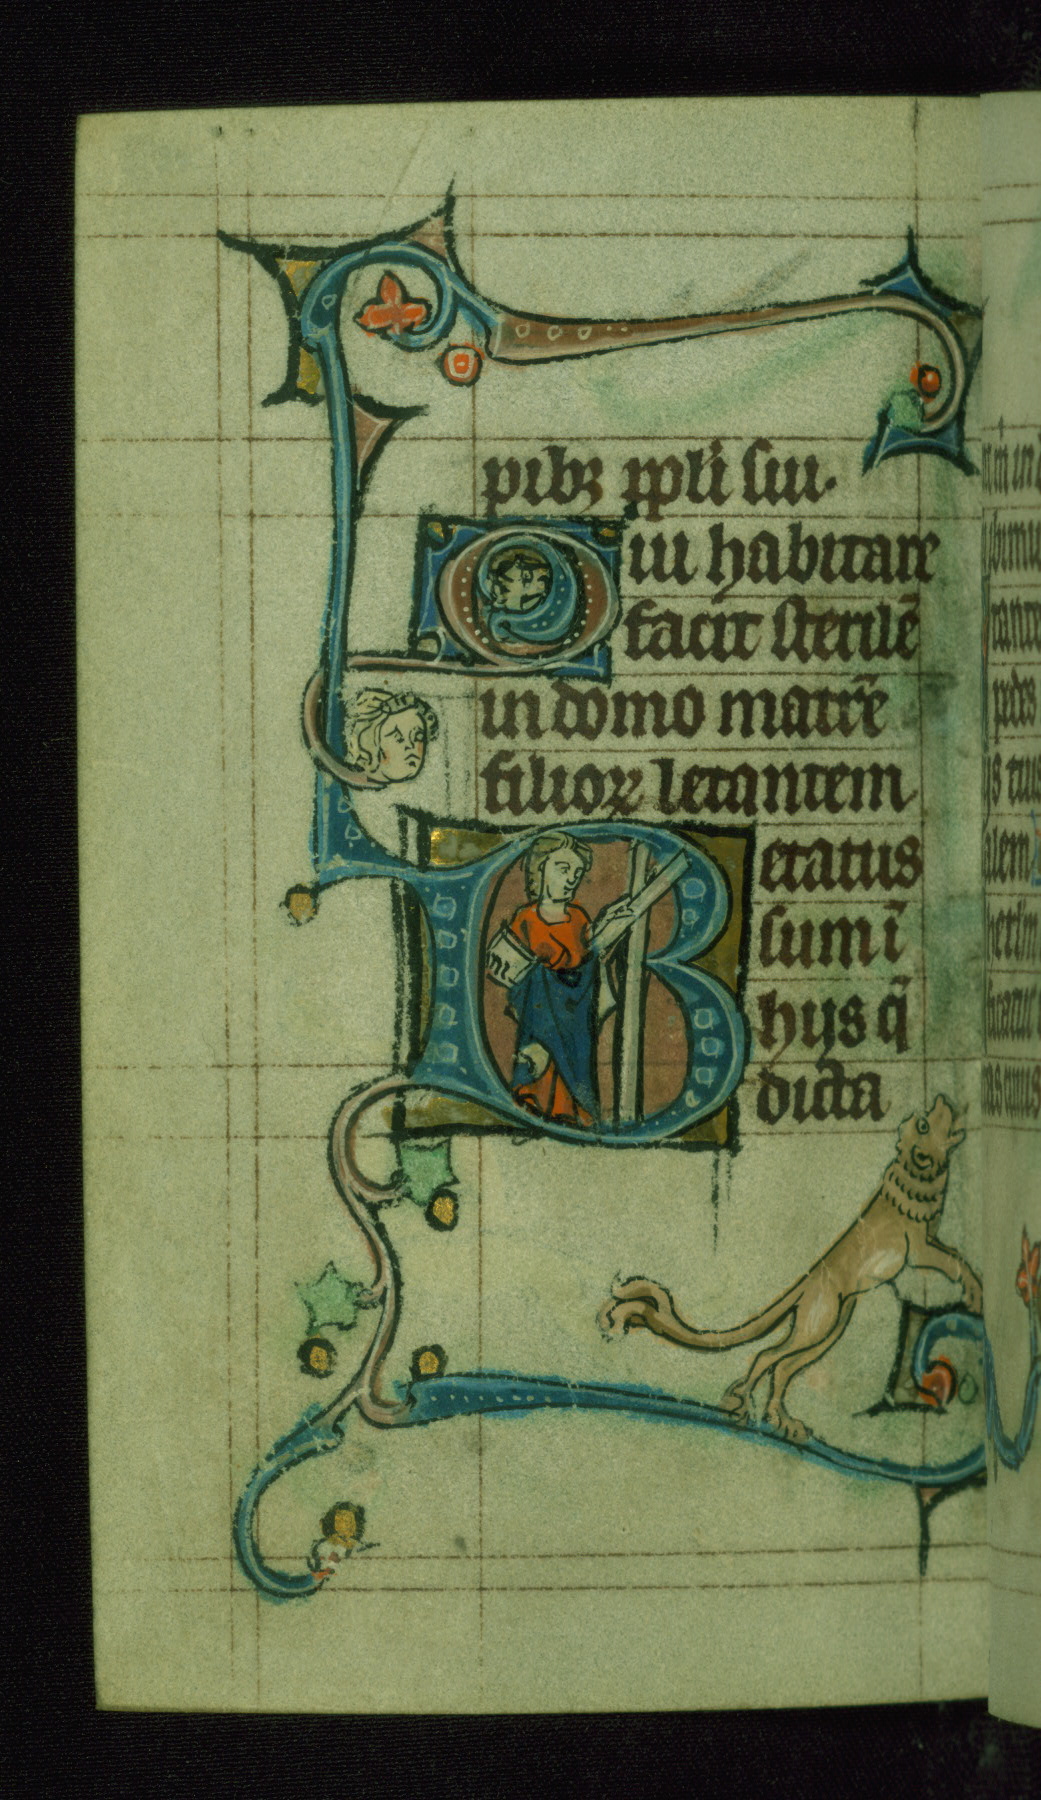 pibꝫ ppl̃i sui.
Qui habitare
facit sterilẽ
in domo matrẽ
filioꝝ letantem
Letatus
sum ĩ
hijs q̃
dicta